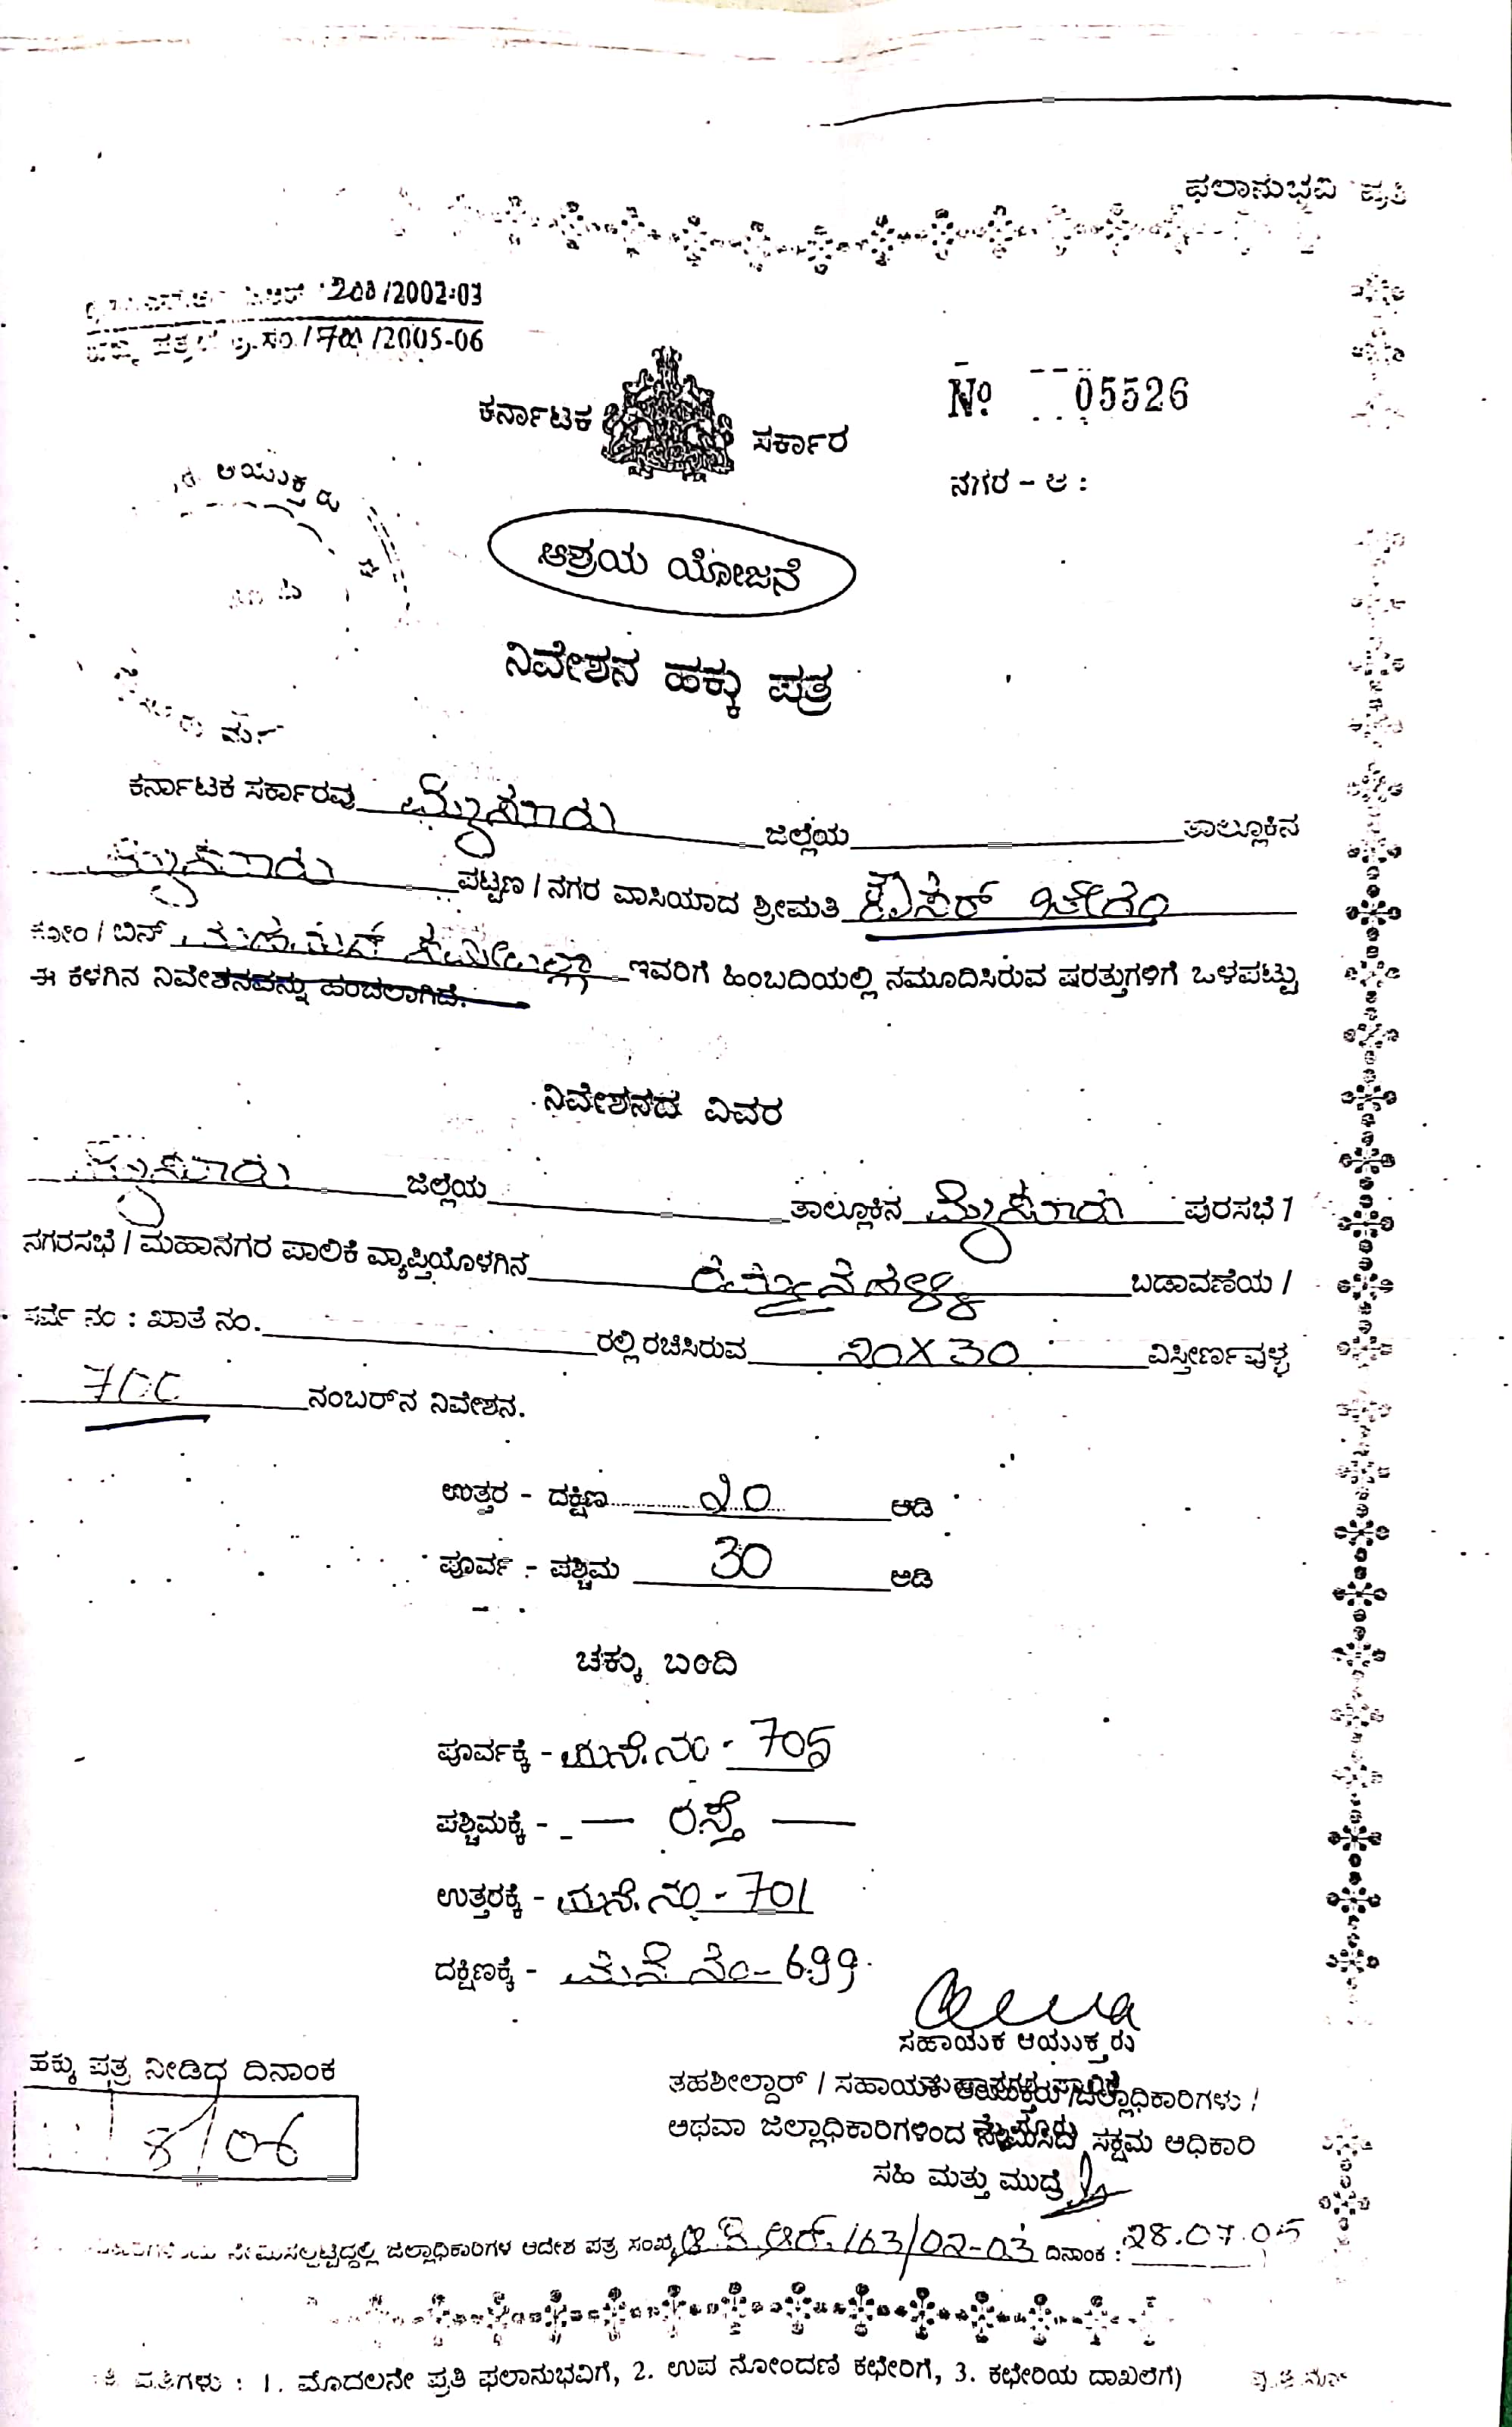 ಫಲಾನುಭವಿ ಪ್ರತಿ
/2002-03
ಹಕ್ಕು ಪತ್ರದ ಕ್ರ.ಸಂ./ /2005-06
ಕರ್ನಾಟಕ ಸರ್ಕಾರ
Nº 05526
ನಗರ - ಆ :
ಆಯುಕ್ತರು
ಆಶ್ರಯ ಯೋಜನೆ
ನಿವೇಶನ ಹಕ್ಕು ಪತ್ರ
ಕರ್ನಾಟಕ ಸರ್ಕಾರವು ಮೈಸೂರು ಜಿಲ್ಲೆಯ ತಾಲ್ಲೂಕಿನ
ಮೈಸೂರು ಪಟ್ಟಣ / ನಗರ ವಾಸಿಯಾದ ಶ್ರೀಮತಿ ಕೌಸರ್ ಬೇಗಂ
ಕೋಂ / ಬಿನ್ ಇವರಿಗೆ ಹಿಂಬದಿಯಲ್ಲಿ ನಮೂದಿಸಿರುವ ಷರತ್ತುಗಳಿಗೆ ಒಳಪಟ್ಟು
ಈ ಕೆಳಗಿನ ನಿವೇಶನವನ್ನು ಹಂಚಲಾಗಿದೆ.
ನಿವೇಶನದ ವಿವರ
ಮೈಸೂರು ಜಿಲ್ಲೆಯ ತಾಲ್ಲೂಕಿನ ಮೈಸೂರು ಪುರಸಭೆ /
ನಗರಸಭೆ / ಮಹಾನಗರ ಪಾಲಿಕೆ ವ್ಯಾಪ್ತಿಯೊಳಗಿನ ಬಡಾವಣೆಯ /
ಸರ್ವೆ ನಂ : ಖಾತೆ ನಂ. ರಲ್ಲಿ ರಚಿಸಿರುವ 20X30 ವಿಸ್ತೀರ್ಣವುಳ್ಳ
700 ನಂಬರ್‌ನ ನಿವೇಶನ.
ಉತ್ತರ - ದಕ್ಷಿಣ 20 ಅಡಿ
ಪೂರ್ವ - ಪಶ್ಚಿಮ 30 ಅಡಿ
ಚಕ್ಕು ಬಂದಿ
ಪೂರ್ವಕ್ಕೆ - ಮನೆ.ನಂ - 705
ಪಶ್ಚಿಮಕ್ಕೆ - — ರಸ್ತೆ —
ಉತ್ತರಕ್ಕೆ - ಮನೆ.ನಂ - 701
ದಕ್ಷಿಣಕ್ಕೆ - ಮನೆ ನಂ - 699
ಸಹಾಯಕ ಆಯುಕ್ತರು
ಹಕ್ಕು ಪತ್ರ ನೀಡಿದ ದಿನಾಂಕ
8/06
ತಹಶೀಲ್ದಾರ್ / ಸಹಾಯಕ ಆಯುಕ್ತರು /ಜಿಲ್ಲಾಧಿಕಾರಿಗಳು /
ಅಥವಾ ಜಿಲ್ಲಾಧಿಕಾರಿಗಳಿಂದ ನೇಮಿಸಿದ ಸಕ್ಷಮ ಅಧಿಕಾರಿ
ಸಹಿ ಮತ್ತು ಮುದ್ರೆ
ನೇಮಿಸಲ್ಪಟ್ಟಿದ್ದಲ್ಲಿ ಜಿಲ್ಲಾಧಿಕಾರಿಗಳ ಆದೇಶ ಪತ್ರ ಸಂಖ್ಯೆ 163/02-03 ದಿನಾಂಕ : 28.07.05
ಪ್ರತಿಗಳು : 1. ಮೊದಲನೇ ಪ್ರತಿ ಫಲಾನುಭವಿಗೆ, 2. ಉಪ ನೋಂದಣಿ ಕಛೇರಿಗೆ, 3. ಕಛೇರಿಯ ದಾಖಲೆಗೆ)